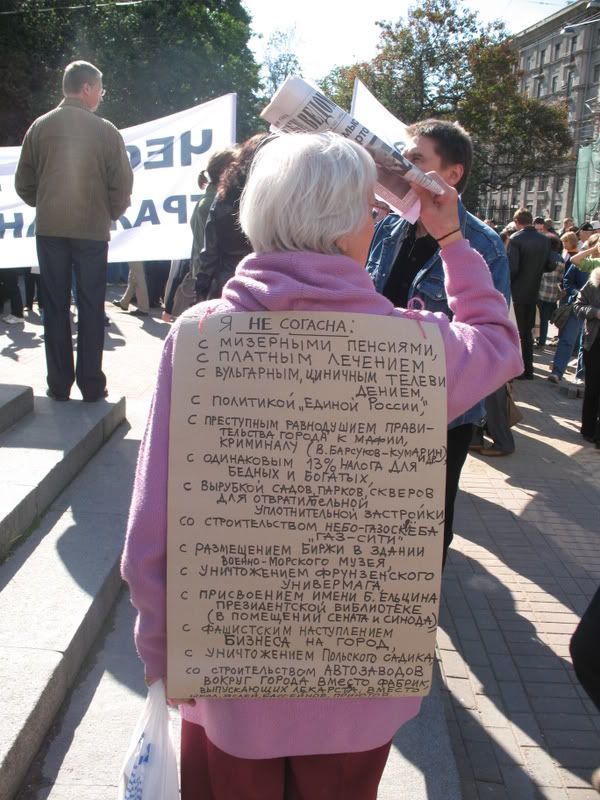 ЧЕС
ТРАЛ
ВЕДОМ
Я НЕ СОГАСНА:
С МИЗЕРНЫМИ ПЕНСИЯМИ,
С ПЛАТНЫМ ЛЕЧЕНИЕМ
С ВУЛЬГАРНЫМ, ЦИНИЧНЫМ ТЕЛЕВИ
ДЕНИЕМ,
С ПОЛИТИКОЙ „ЕДИНОЙ РОССИИ",
С ПРЕСТУПНЫМ РАВНОДУШИЕМ ПРАВИ-
ТЕЛЬСТВА ГОРОДА К МАФИИ,
КРИМИНАЛУ (В. БАРСУКОВ-КУМАРИН) И ДР.,
С ОДИНАКОВЫМ 13% НАЛОГА ДЛЯ
БЕДНЫХ И БОГАТЫХ,
С ВЫРУБКОЙ САДОВ, ПАРКОВ, СКВЕРОВ
ДЛЯ ОТВРАТИТЕЛЬНОЙ
УПЛОТНИТЕЛЬНОЙ ЗАСТРОЙКИ,
СО СТРОИТЕЛЬСТВОМ НЕБО-ГАЗОСКРЁБА
„ГАЗ-СИТИ"
С РАЗМЕЩЕНИЕМ БИРЖИ В ЗДАНИИ
ВОЕННО-МОРСКОГО МУЗЕЯ,
С УНИЧТОЖЕНИЕМ ФРУНЗЕНСКОГО
УНИВЕРМАГА
С ПРИСВОЕНИЕМ ИМЕНИ Б. ЕЛЬЦИНА
ПРЕЗИДЕНТСКОЙ БИБЛИОТЕКЕ
(В ПОМЕЩЕНИЙ СЕНАТА И СИНОДА)
С ФАШИСТСКИМ НАСТУПЛЕНИЕМ
БИЗНЕСА НА ГОРОД,
С УНИЧТОЖЕНИЕМ ПОЛЬСКОГО САДИКА,
СО СТРОИТЕЛЬСТВОМ АВТОЗАВОДОВ
ВОКРУГ ГОРОДА ВМЕСТО ФАБРИК,
ВЫПУСКАЮЩИХ ЛЕКАРСТВА, ВМЕСТО
ШКОЛ, ЯСЛЕЙ, БАССЕЙНОВ, ПРИЮТОВ